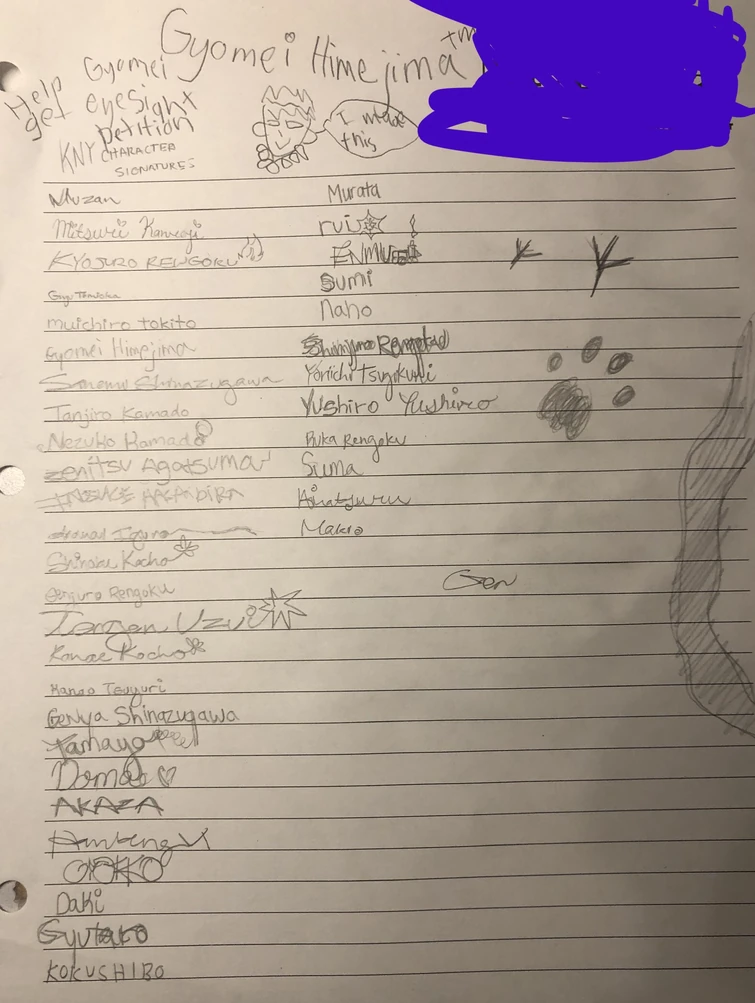 Gyomei Himejima™
Help Gyomei
get eyesight
petition
KNY CHARACTER
SIGNATURES
I made
this
Muzan
Mitsuri Kanroji
KYOJURO RENGOKU
Giyu Tomioka
muichiro tokito
Gyomei Himejima
Sanemi Shinazugawa
Tanjiro Kamado
Nezuko Kamado
Zenitsu Agatsuma
INOSUKE HASHIBIRA
Iguro
Shinobu Kocho
Senjuro Rengoku
Tengen Uzui
Kanae Kocho
Kanao Tsuyuri
Genya Shinazugawa
Tamayo
Doma
AKAZA
Hantengu
Daki
Gyutaro
KOKUSHIBO
Murata
rui
ENMU
Sumi
Naho
Shinjuro Rengoku
Yoriichi Tsugikuni
Yushiro Yushiro
Ruka Rengoku
Suma
Hinatsuru
Makio
Gen